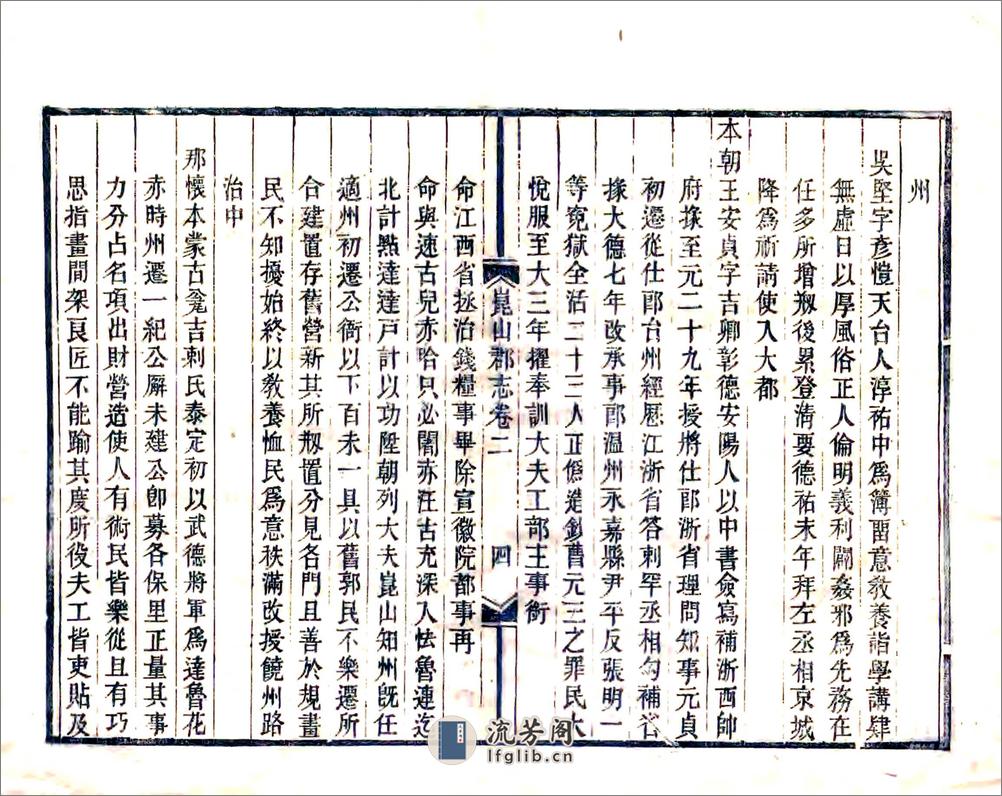 州
吳堅字彥愷天台人淳祐中爲簿畱意敎養詣學講肄
無虛日以厚風俗正人倫明義利闢姦邪爲先務在
任多所增刱後累登淸要德祐末年拜左丞相京城
降爲祈請使入大都
本朝王安貞字吉卿彰德安陽人以中書僉寫補浙西帥
府掾至元二十九年授將仕郎浙省理問知事元貞
初遷從仕郎台州經歷江浙省答剌罕丞相勾補省
掾大德七年改承事郎溫州永嘉縣尹平反張明一
等寃獄全活二十三人正僞造鈔曹元三之罪民大
悅服至大三年擢奉訓大夫工部主事銜
崑山郡志卷二
四
命江西省拯治錢糧事畢除宣徽院都事再
命與速古兒赤哈只必闍赤汪古充深入怯魯連迄
北計點達達戸計以功陞朝列大夫崑山知州旣任
適州初遷公衙以下百未一具以舊郭民不樂遷所
合建置存舊營新其所刱置分見各門且善於規畫
民不知擾始終以敎養恤民爲意秩滿改授饒州路
治中
那懷本蒙古瓮吉剌氏泰定初以武德將軍爲達魯花
赤時州遷一紀公廨未建公卽募各保里正量其事
力分占名項出財營造使人有術民皆樂從且有巧
思指畫間架良匠不能踰其度所役夫工皆吏貼及
流芳閣
lfglib.cn